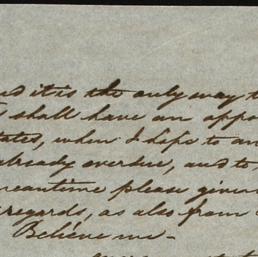 and it is the only way t
I shall have an oppo
tates, when I hope to an
already overdue, and to
meantime please give
regards, as also from
Believe me-